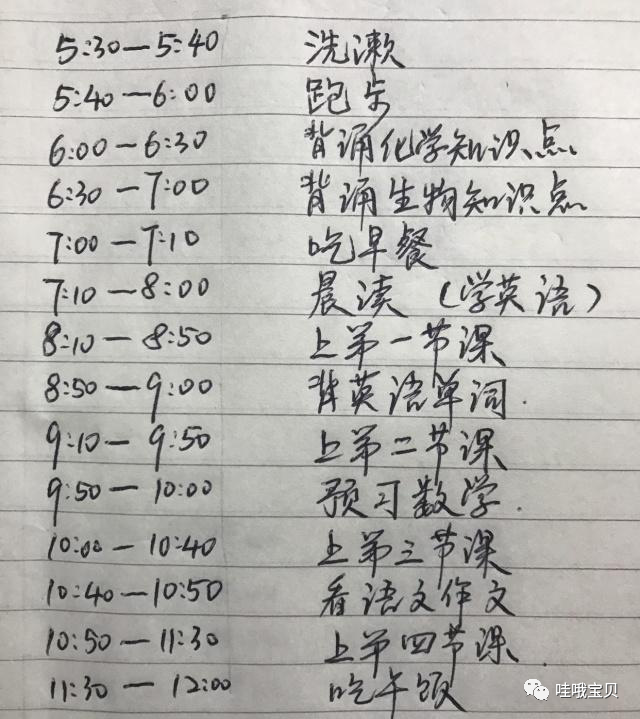 5:30—5:40 洗漱
5:40—6:00 跑步
6:00—6:30 背诵化学知识点
6:30—7:00 背诵生物知识点
7:00—7:10 吃早餐
7:10—8:00 晨读（学英语）
8:10—8:50 上第一节课
8:50—9:00 背英语单词.
9:10—9:50 上第二节课
9:50—10:00 预习数学.
10:00—10:40 上第三节课
10:40—10:50 看语文作文
10:50—11:30 上第四节课.
11:30—12:00 吃午饭
哇哦宝贝